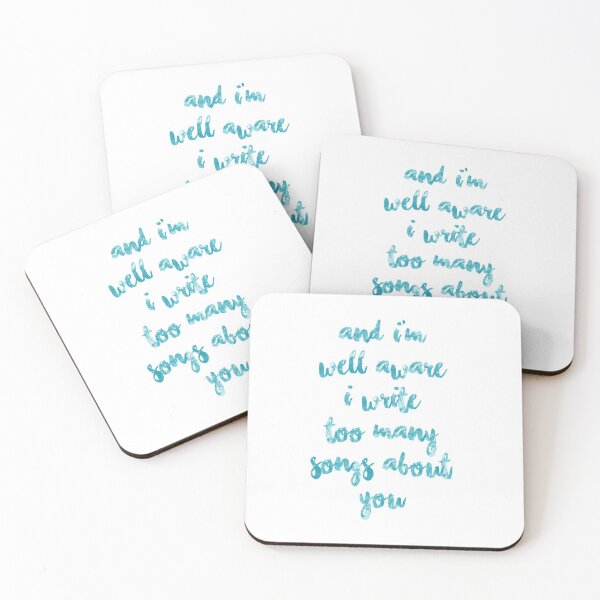 and i'm
well aware
i write
and i'm
well aware
i write
too many
songs about
and i'm
well aware
i write
too many
songs
you
and i'm
well aware
i write
too many
songs about
you